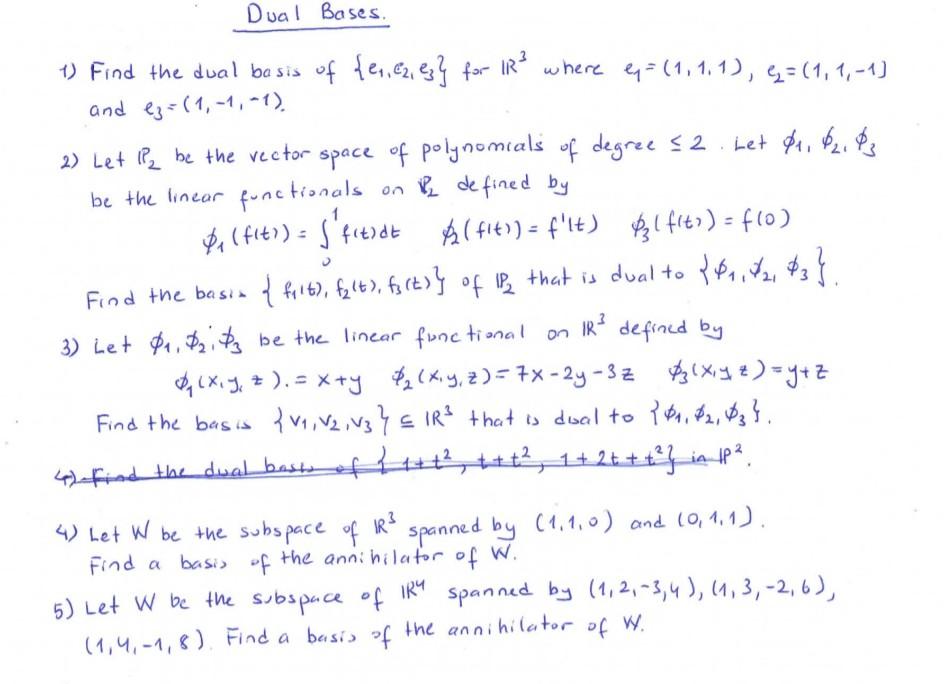 Dual Bases.
1) Find the dual basis of {e₁,e₂,e₃} for ℝ³ where e₁=(1,1,1), e₂=(1,1,-1)
and e₃=(1,-1,-1).
2) Let ℙ₂ be the vector space of polynomials of degree ≤ 2. Let ϕ₁, ϕ₂, ϕ₃
be the linear functionals on ℙ₂ defined by
ϕ₁(f(t)) = ∫₀¹ f(t)dt ϕ₂(f(t)) = f'(t) ϕ₃(f(t)) = f(0)
Find the basis {f₁(t), f₂(t), f₃(t)} of ℙ₂ that is dual to {ϕ₁, ϕ₂, ϕ₃}.
3) Let ϕ₁, ϕ₂, ϕ₃ be the linear functional on ℝ³ defined by
ϕ₁(x,y,z). = x+y ϕ₂(x,y,z) = 7x-2y-3z ϕ₃(x,y,z) = y+z
Find the basis {v₁,v₂,v₃} ⊆ ℝ³ that is dual to {ϕ₁, ϕ₂, ϕ₃}.
4) Find the dual basis of {1+t², t+t², 1+2t+t²} in ℙ².
4) Let W be the subspace of ℝ³ spanned by (1,1,0) and (0,1,1).
Find a basis of the annihilator of W.
5) Let W be the subspace of ℝ⁴ spanned by (1,2,-3,4), (1,3,-2,6),
(1,4,-1,8). Find a basis of the annihilator of W.